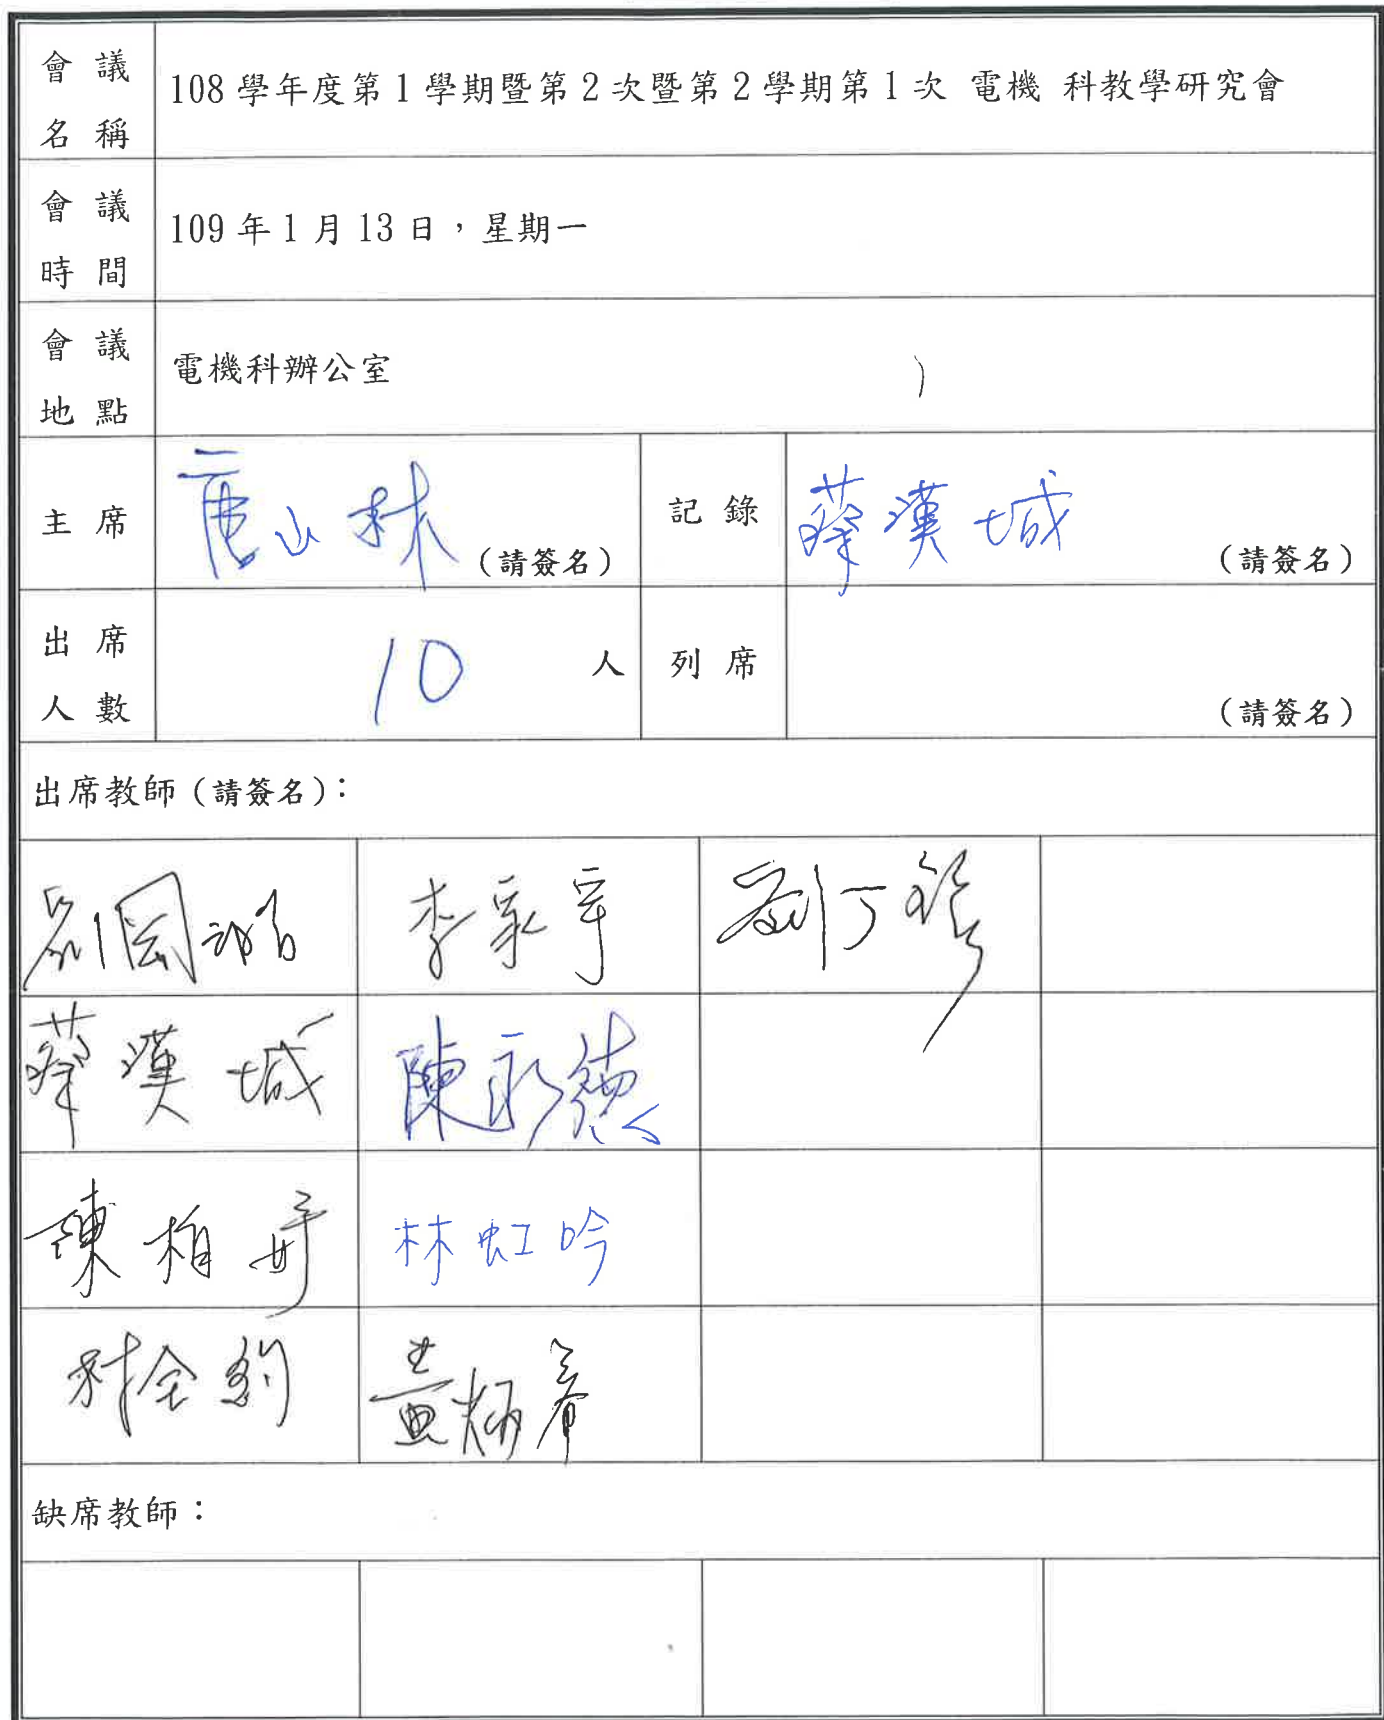 會議名稱
108 學年度第 1 學期暨第 2 次暨第 2 學期第 1 次 電機 科教學研究會
會議時間
109 年 1 月 13 日，星期一
會議地點
電機科辦公室
主席
唐山林
(請簽名)
記錄
蔡漢城
(請簽名)
出席人數
10 人
列席
(請簽名)
出席教師(請簽名)：
李家宇
蔡漢城
陳永德
陳柏
林虹吟
黃炳
缺席教師：